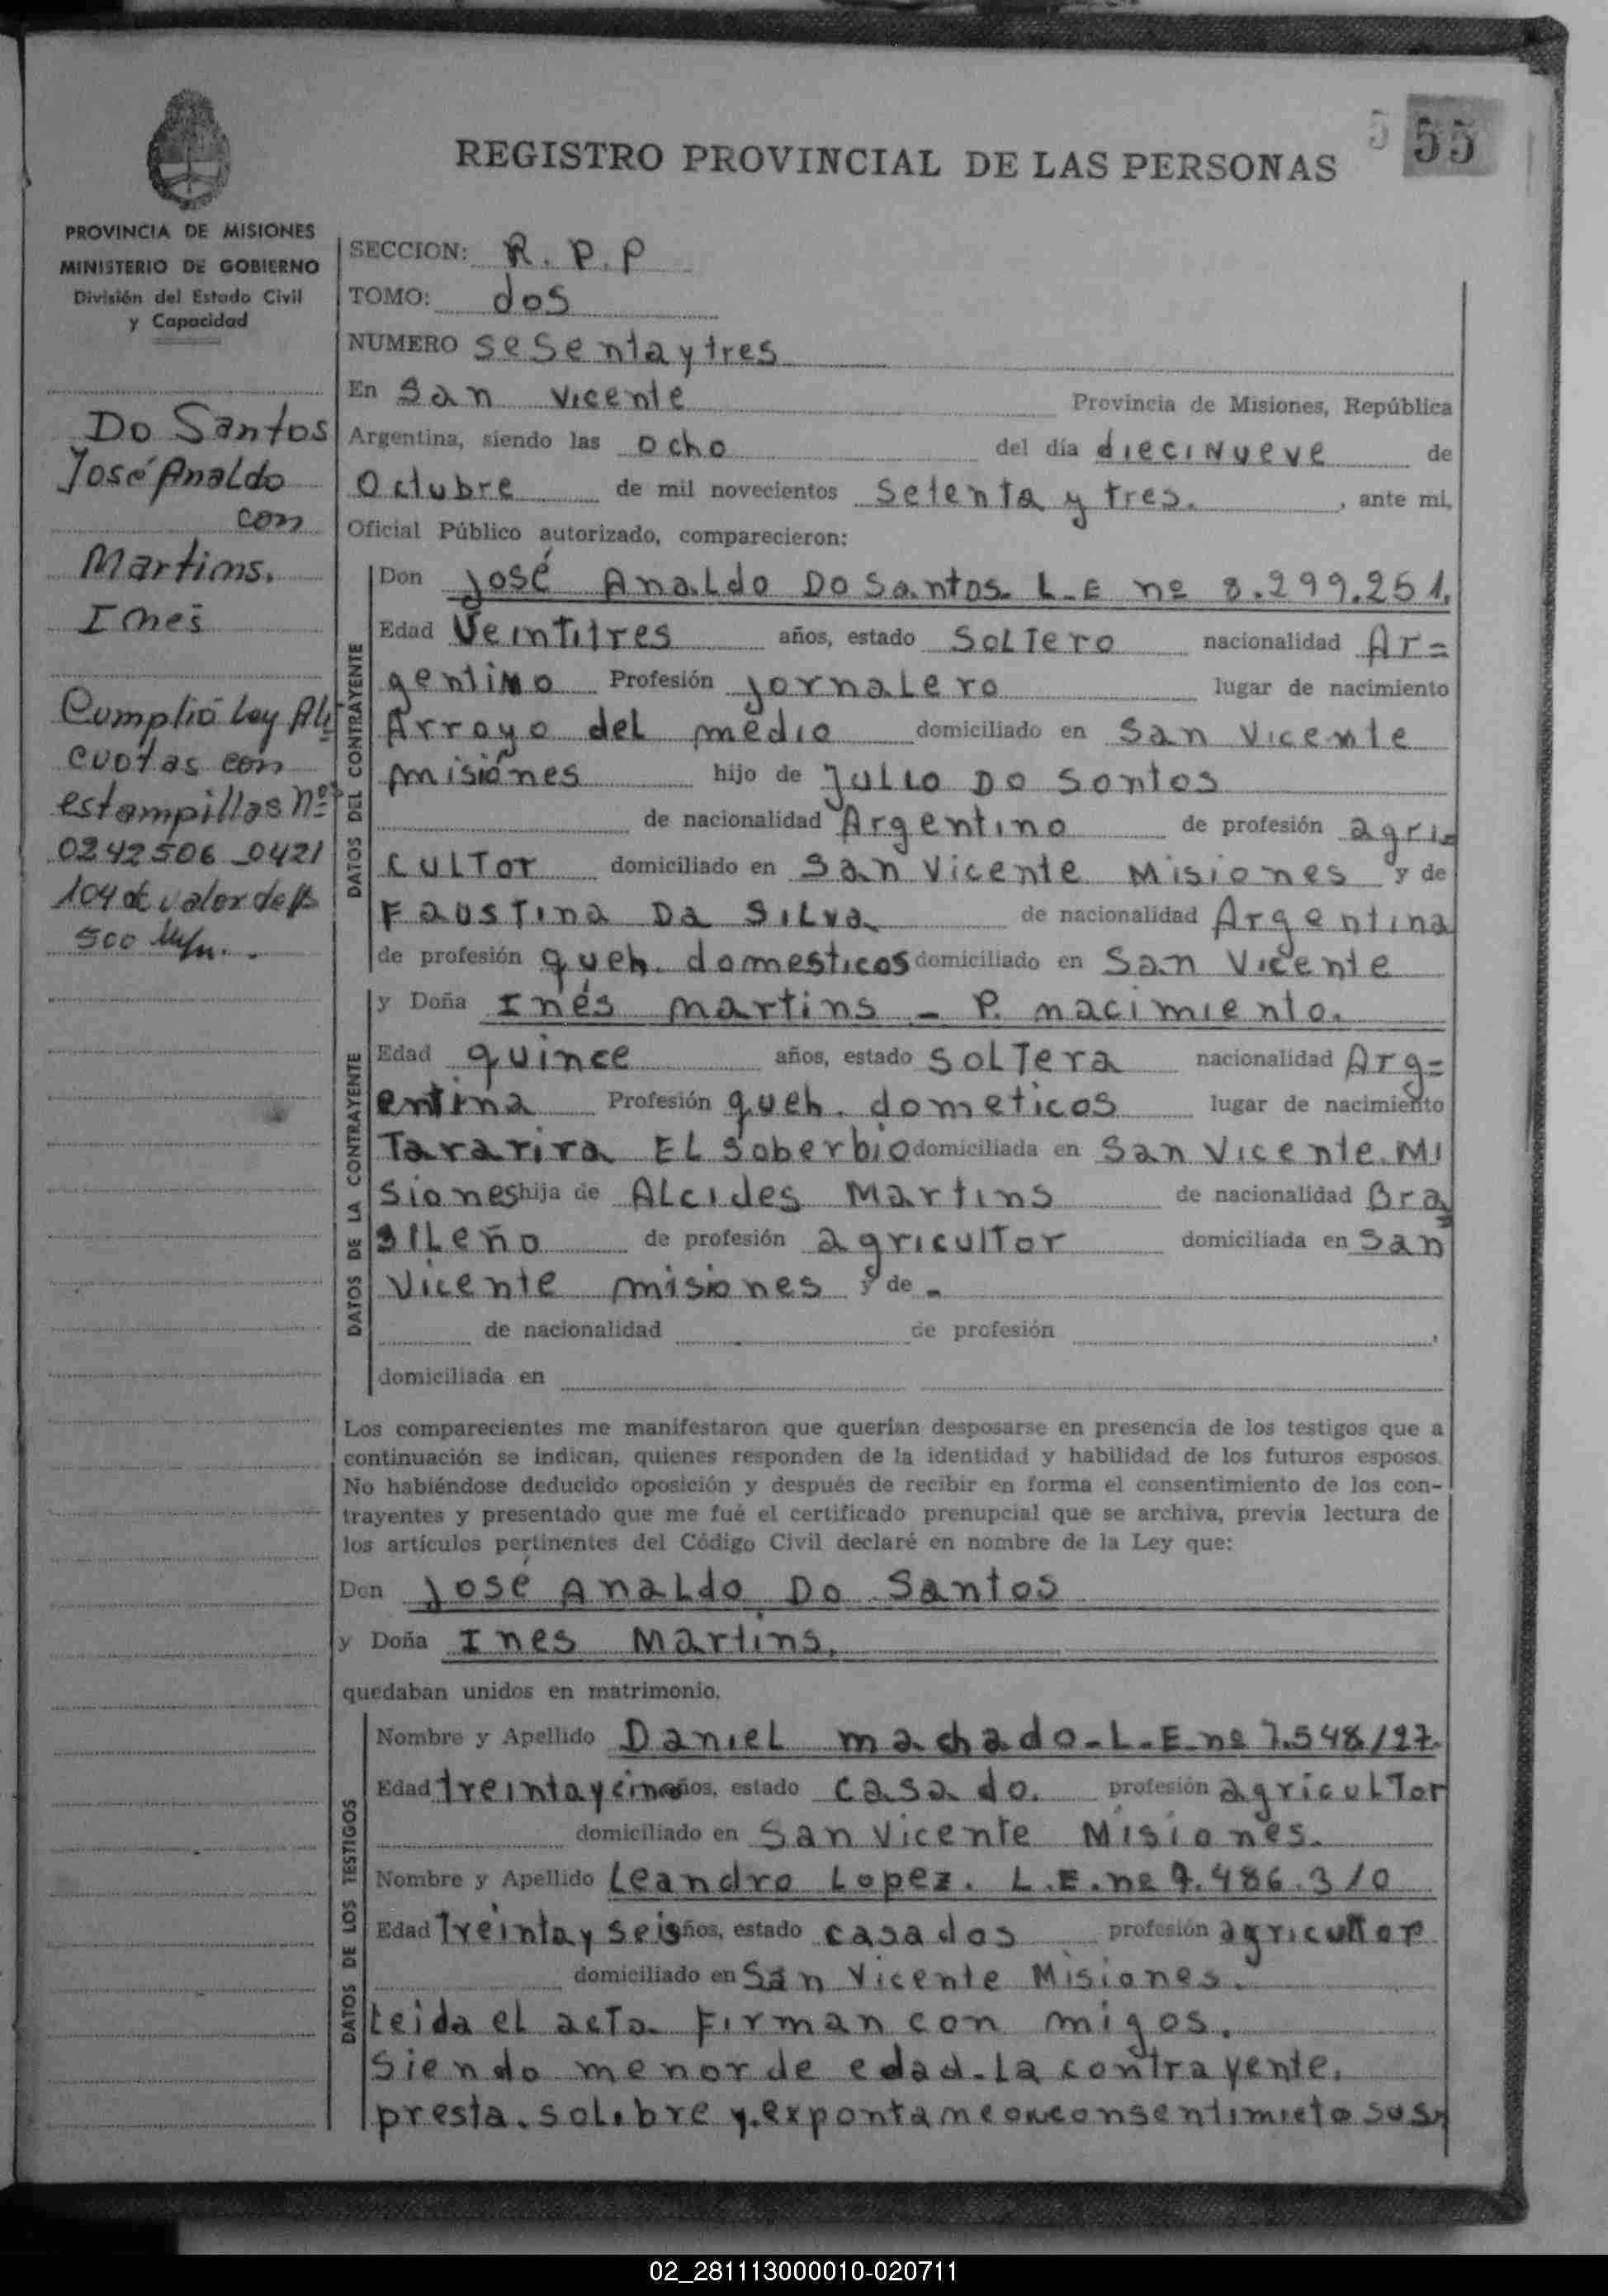 5 55
REGISTRO PROVINCIAL DE LAS PERSONAS
PROVINCIA DE MISIONES
MINISTERIO DE GOBIERNO
División del Estado Civil
y Capacidad
Do Santos
José Analdo
con
Martims.
Ines
Cumplió Ley Ali
cuotas con
estampillas Nos
0242506 0421
104 de valor de $
500 m/n.
SECCION: R.P.P
TOMO: dos
NUMERO sesenta y tres
En San Vicente Provincia de Misiones, República
Argentina, siendo las ocho del día diecinueve de
Octubre de mil novecientos setenta y tres. , ante mi,
Oficial Público autorizado, comparecieron:
DATOS DEL CONTRAYENTE
Don José Analdo Do Santos. L-E nº 8.299.251.
Edad Veintitres años, estado Soltero nacionalidad Ar=
gentino Profesión jornalero lugar de nacimiento
Arroyo del medio domiciliado en San Vicente
misiones hijo de Julio Do Sontos
de nacionalidad Argentino de profesión agri=
cultor domiciliado en San Vicente Misiones y de
Faustina Da Silva de nacionalidad Argentina
de profesión queh. domesticos domiciliado en San Vicente
DATOS DE LA CONTRAYENTE
y Doña Inés Martins - P. nacimiento.
Edad quince años, estado soltera nacionalidad Arg=
entina Profesión queh. dometicos lugar de nacimiento
Tararira EL Soberbio domiciliada en San Vicente. Mi
siones hija de Alcides Martins de nacionalidad Bra
sileño de profesión agricultor domiciliada en San
Vicente misiones y de -
de nacionalidad de profesión
domiciliada en
Los comparecientes me manifestaron que querían desposarse en presencia de los testigos que a
continuación se indican, quienes responden de la identidad y habilidad de los futuros esposos.
No habiéndose deducido oposición y después de recibir en forma el consentimiento de los con-
trayentes y presentado que me fué el certificado prenupcial que se archiva, previa lectura de
los artículos pertinentes del Código Civil declaré en nombre de la Ley que:
Don José Analdo Do Santos
y Doña Ines Martins.
quedaban unidos en matrimonio.
DATOS DE LOS TESTIGOS
Nombre y Apellido Daniel machado-L-E-nº 7.548127.
Edad treintaycinco años, estado casado. profesión agricultor
domiciliado en San Vicente Misiones.
Nombre y Apellido Leandro Lopez. L.E.nº 7.486.310
Edad treinta y seis años, estado casados profesión agricultor
domiciliado en San Vicente Misiones.
Leida el acta firman con migos.
Siendo menor de edad-la contrayente.
presta. solibre y.expontameo consentimieto sus
02_281113000010-020711